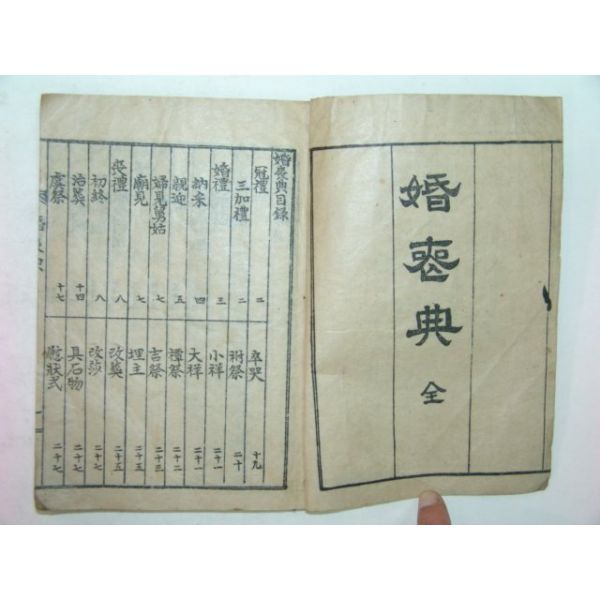 婚喪典 全
婚喪典目錄
冠禮 二
三加禮 二
婚禮 三
納采 四
親迎 五
婦見舅姑 七
廟見 七
喪禮 八
初終 八
治葬 十四
虞祭 十七
卒哭 十九
祔祭 二十
小祥 二十一
大祥 二十一
禫祭 二十二
吉祭 二十三
埋主 二十五
改葬 二十五
改莎 二十七
具石物 二十七
慰狀式 二十七